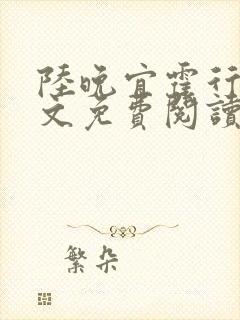 陸晚宜霍行
文免費閱讀
繁朵